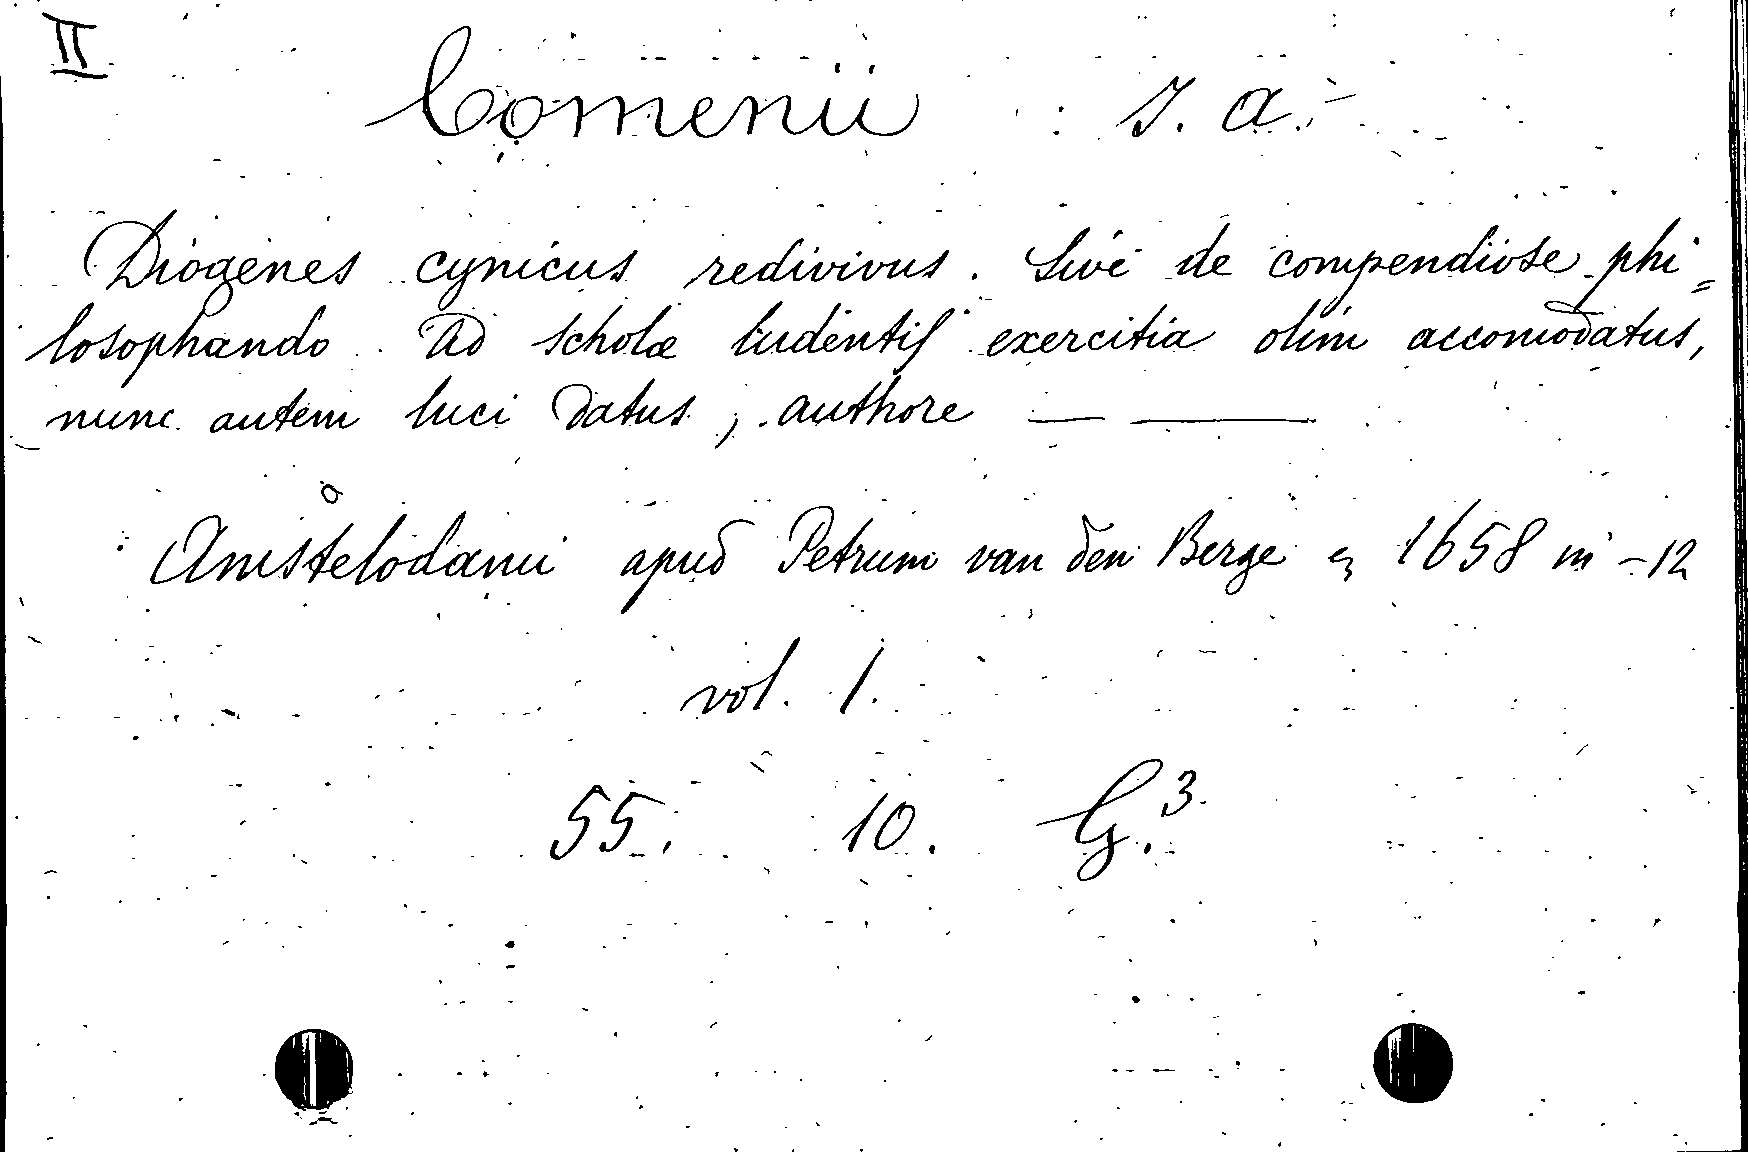 II
Comenii J. A.
Diogenes cynicus redivivus. Sive de compendiose phi=
losophando. Ad scholæ ludentis exercitia olim accomodatus,
nunc autem luci datus, authore — ——
Amstelodami apud Petrum van den Berge 1658 in -12
vol. 1.
55. 10. G.³